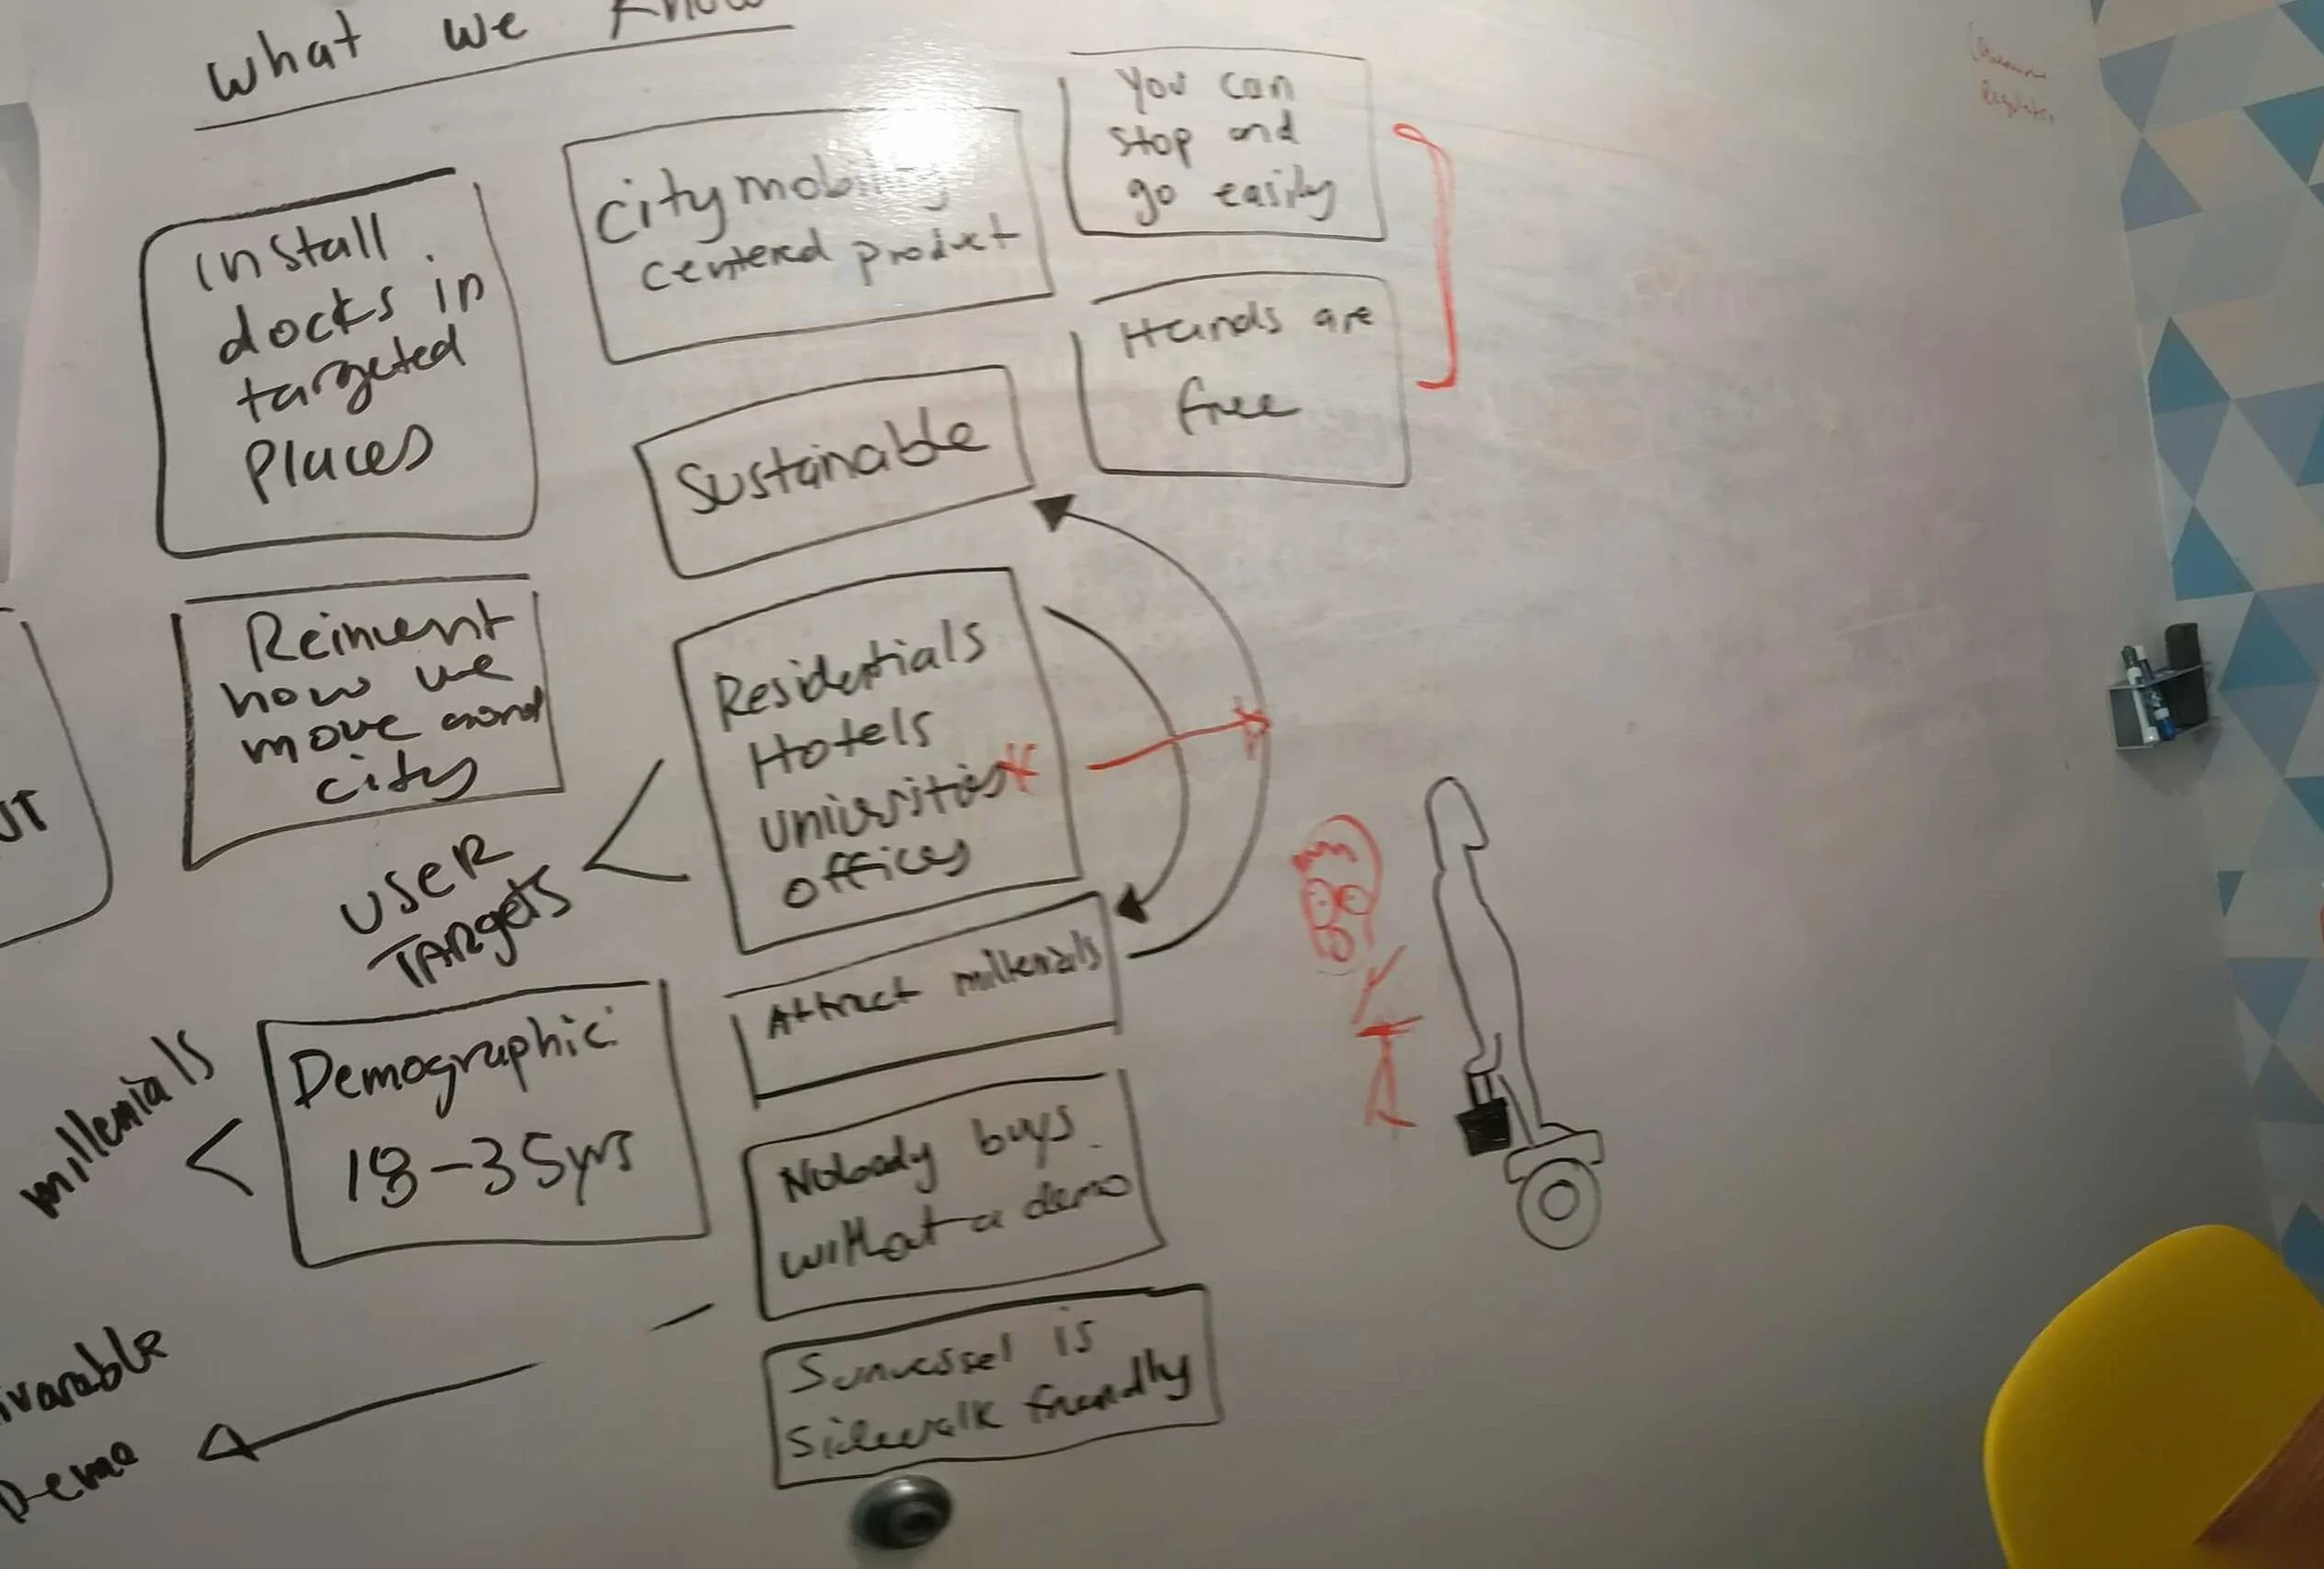 what we know
install
docks in
targeted
places
city mobility
centered product
You can
stop and
go easily
Hands are
free
Sustainable
Reinvent
how we
move around
city
Residentials
Hotels
Universities*
offices
USER
TARgeTS
Attract millenials
Demographic:
18-35yrs
millenials
Nobody buys.
without a demo
Sunvessel is
sidewalk friendly
Demo